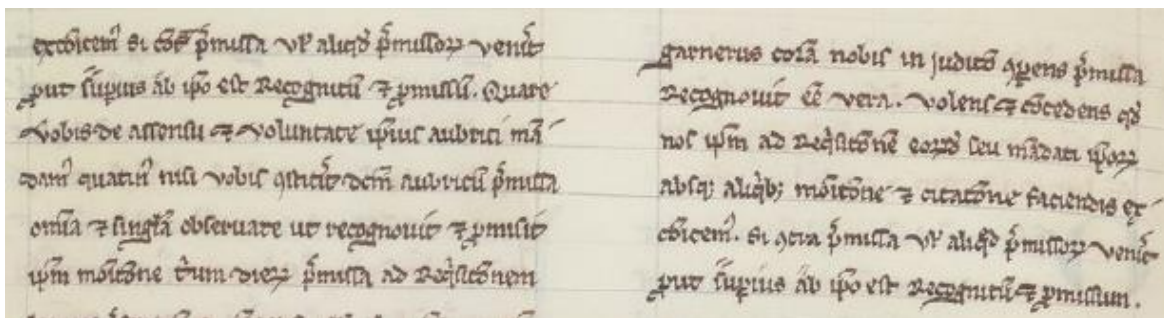 excōicem᷒ si cōt᷑ p̄missa ul᷑ aliqḋ p̄missoꝝ veni᷑t
ꝓut sup̄ius ab ip̄o est recognitū ⁊ ꝓmissū. Quare
vobis de assensu ⁊ voluntate ip̄ius aubrici mā
dam᷒ quatin᷒ nisi vobis ꝯstit̄it dc̄m aubricū p̄missa
om̄ia ⁊ singl̄a observare ut recognovit ⁊ ꝓmisit
ip̄m moīcōne t̄um dieꝝ p̄missa ad req̇sicōnem
garnerus corā nobis in judicō ꝯparens p̄missa
recognovit eē vera. volens ⁊ cōcedens qḋ
nos ip̄m ad req̇sicōnē eoꝝd̄ seu mādati ip̄oꝝ
absq; aliq̇b; moīcōne ⁊ citatōne faciendis ex
cōicem᷒. si ꝯtra p̄missa ul᷑ aliqḋ p̄missoꝝ veni᷑t
ꝓut sup̄ius ab ip̄o est recognitū ⁊ ꝓmissum.